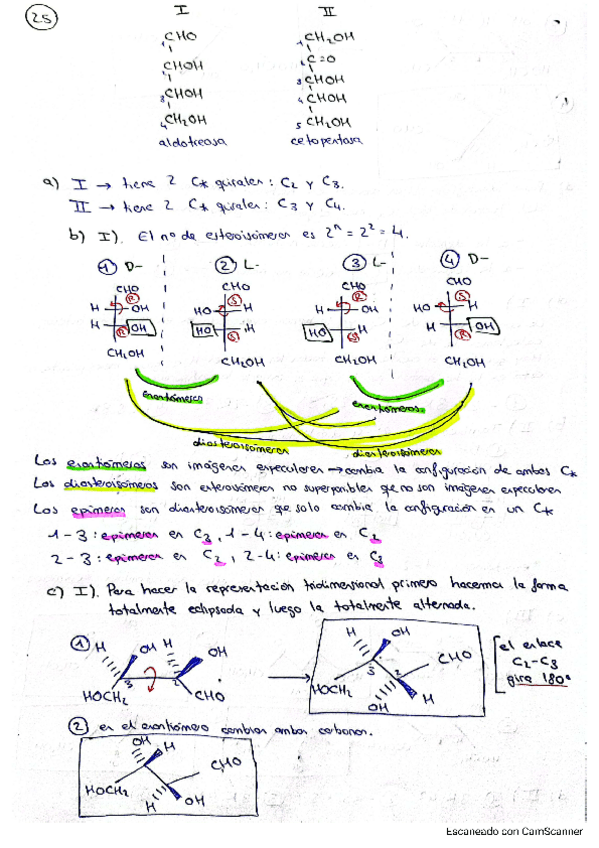 25
I II
1 CHO 1 CH2OH
CHOH 2 C=O
3 CHOH 3 CHOH
4 CH2OH 4 CHOH
5 CH2OH
aldotreosa cetopentosa
a) I → tiene 2 C* quirales: C2 y C3.
II → tiene 2 C* quirales: C3 y C4.
b) I). El nº de estereoisómeros es 2^n = 2^2 = 4.
1 D- 2 L- 3 L- 4 D-
CHO CHO CHO CHO
H R OH HO S H H R OH HO S H
H R OH HO S H HO S H H R OH
CH2OH CH2OH CH2OH CH2OH
enantiómeros enantiómeros
diastereoisómeros diastereoisómeros
Los enantiómeros son imágenes especulares → cambia la configuración de ambos C*
Los diastereoisómeros son estereoisómeros no superponibles que no son imágenes especulares
Los epímeros son diastereoisómeros que solo cambia la configuración en un C*
1-3: epímeros en C3, 1-4: epímeros en C2
2-3: epímeros en C2, 2-4: epímeros en C3
c) I). Para hacer la representación tridimensional primero hacemos la forma
totalmente eclipsada y luego la totalmente alternada.
1 H OH H OH HOCH2 3 2 CHO → H OH HOCH2 3 2 CHO OH H
el enlace
C2-C3
gira 180º
2 en el enantiómero cambian ambos carbonos.
OH H HOCH2 CHO H OH
Escaneado con CamScanner